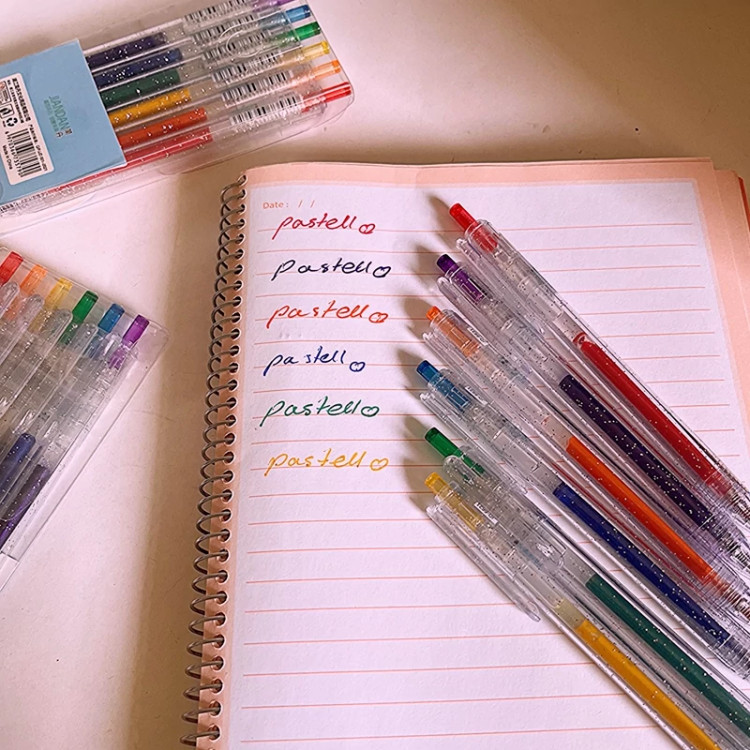 JIANDAN
Date: / /
pastell
pastell
pastell
pastell
pastell
pastell